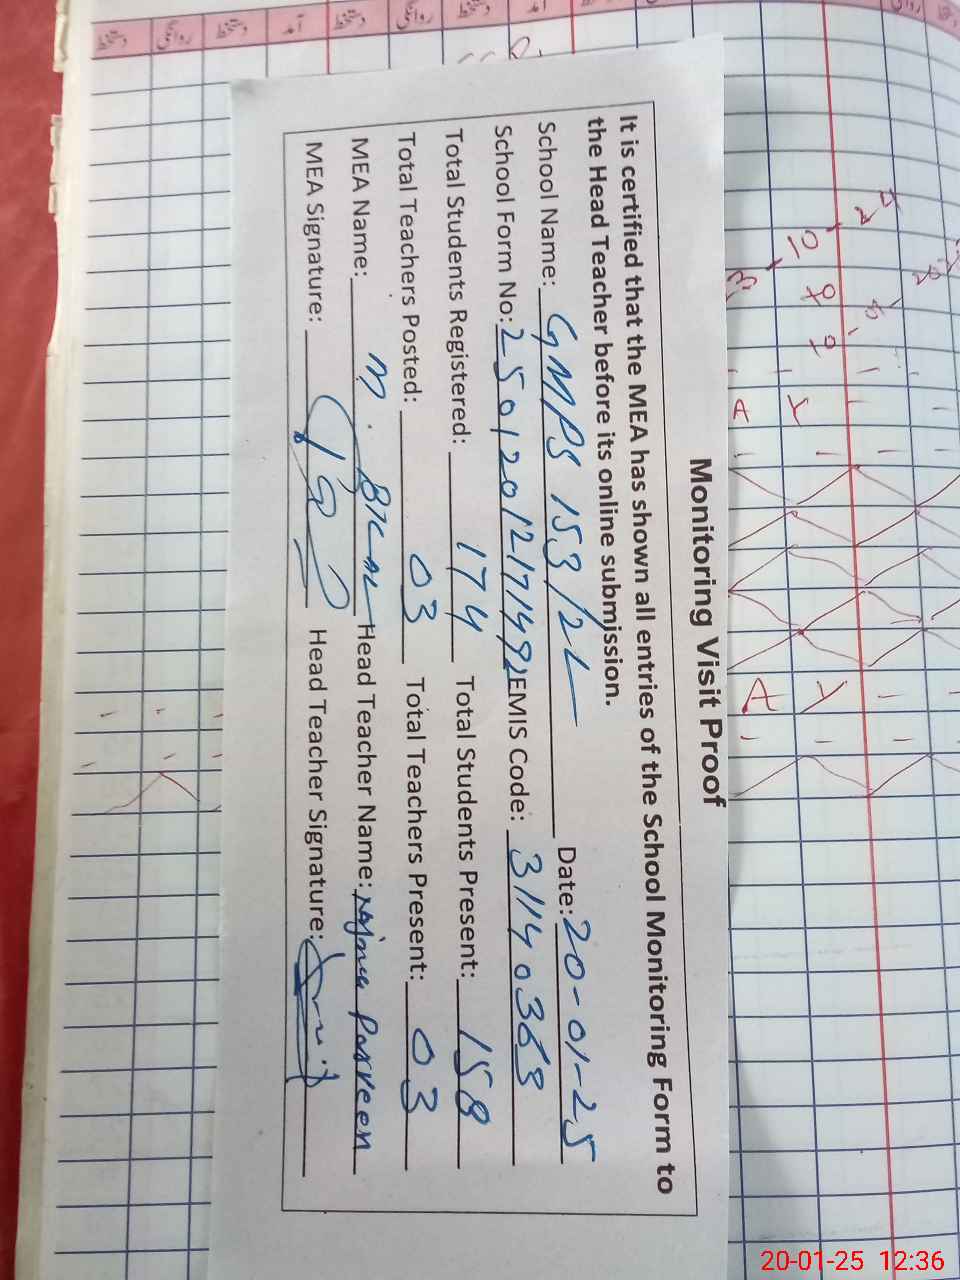 Monitoring Visit Proof
It is certified that the MEA has shown all entries of the School Monitoring Form to
the Head Teacher before its online submission.
School Name: GMPS 153/2L Date: 20-01-25
School Form No: 25012012171492 EMIS Code: 31140363
Total Students Registered: 174 Total Students Present: 158
Total Teachers Posted: 03 Total Teachers Present: 03
MEA Name: M. Bilal Head Teacher Name: Najma Parveen
MEA Signature: Head Teacher Signature:
20-01-25 12:36